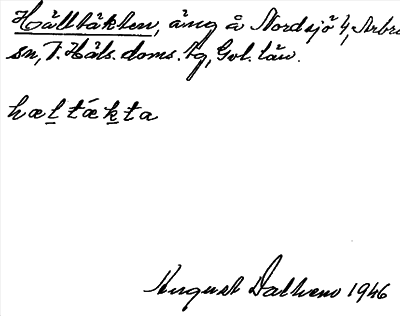 Hålltäkten, äng å Nordsjö 4, Arbrå
sn, V. Häls. doms. tg, Gvl. län.
hæltákta
August Dalhem 1946